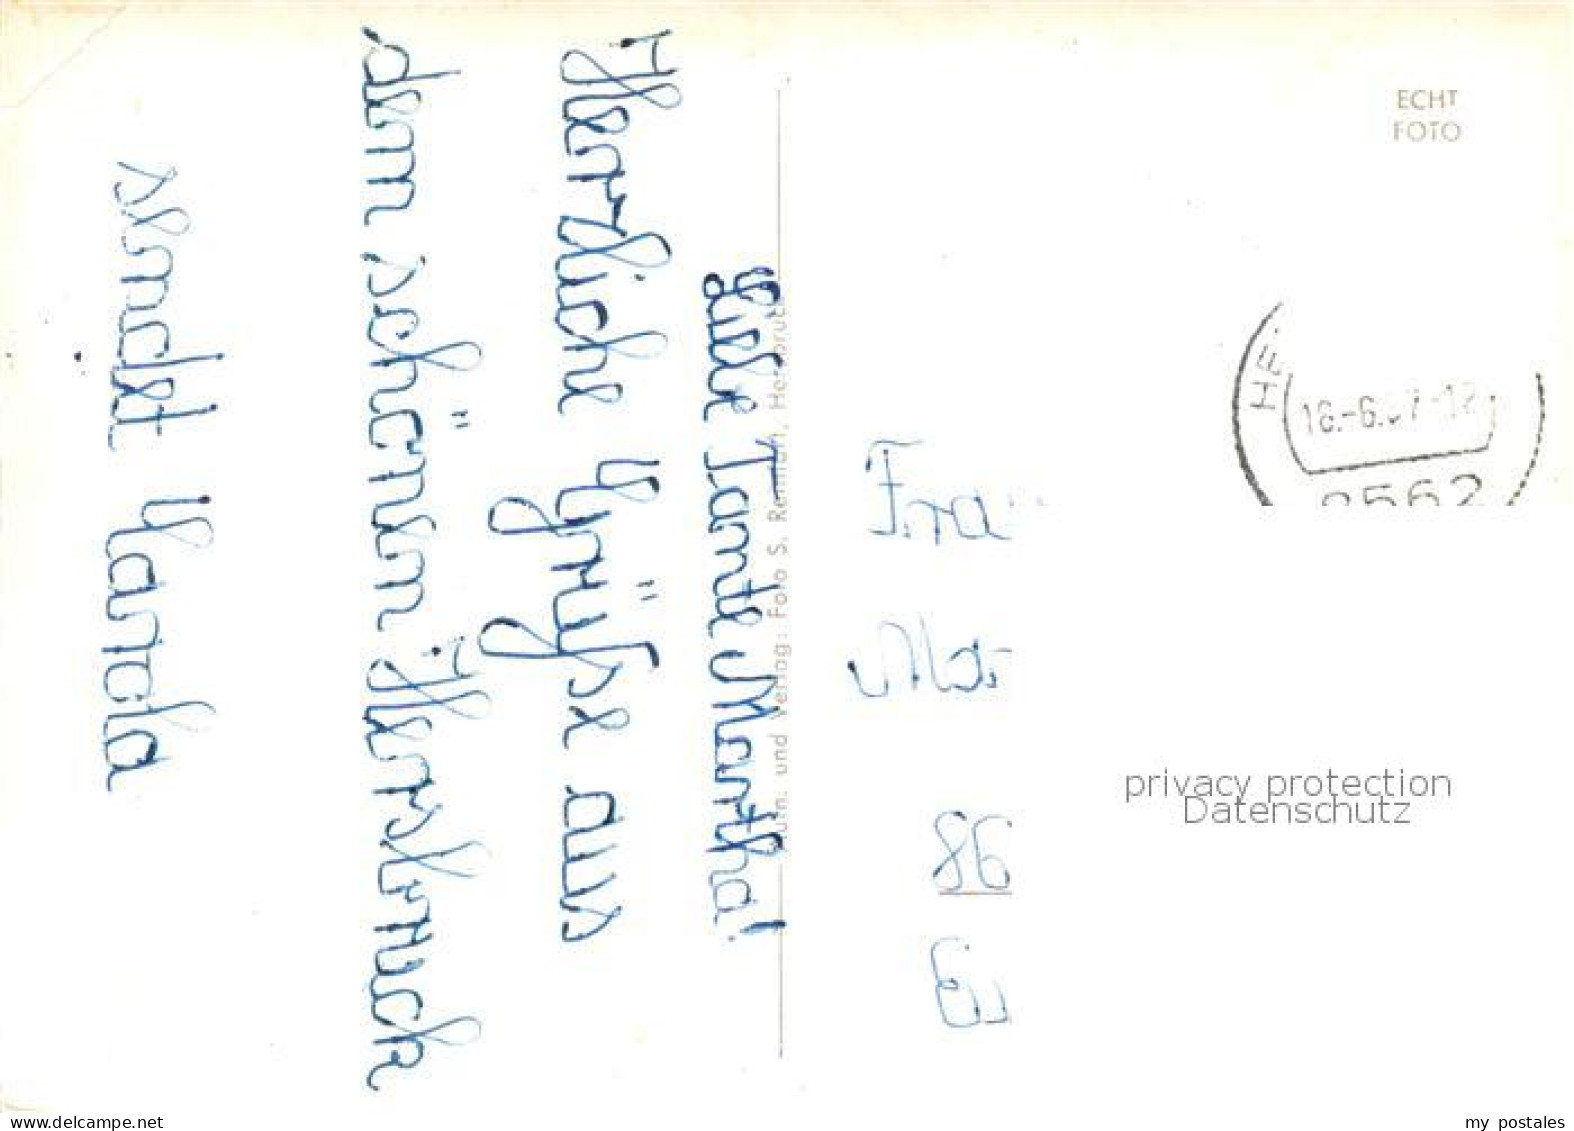 Liebe Tante Martha!
Herzliche Grüße aus
dem schönen Hersbruck
sendet Harald
ECHT
FOTO
und Verlag: Foto S.
HE
16.-6.
8562
Fra
Mar
86
privacy protection
Datenschutz
www.delcampe.net
my_postales